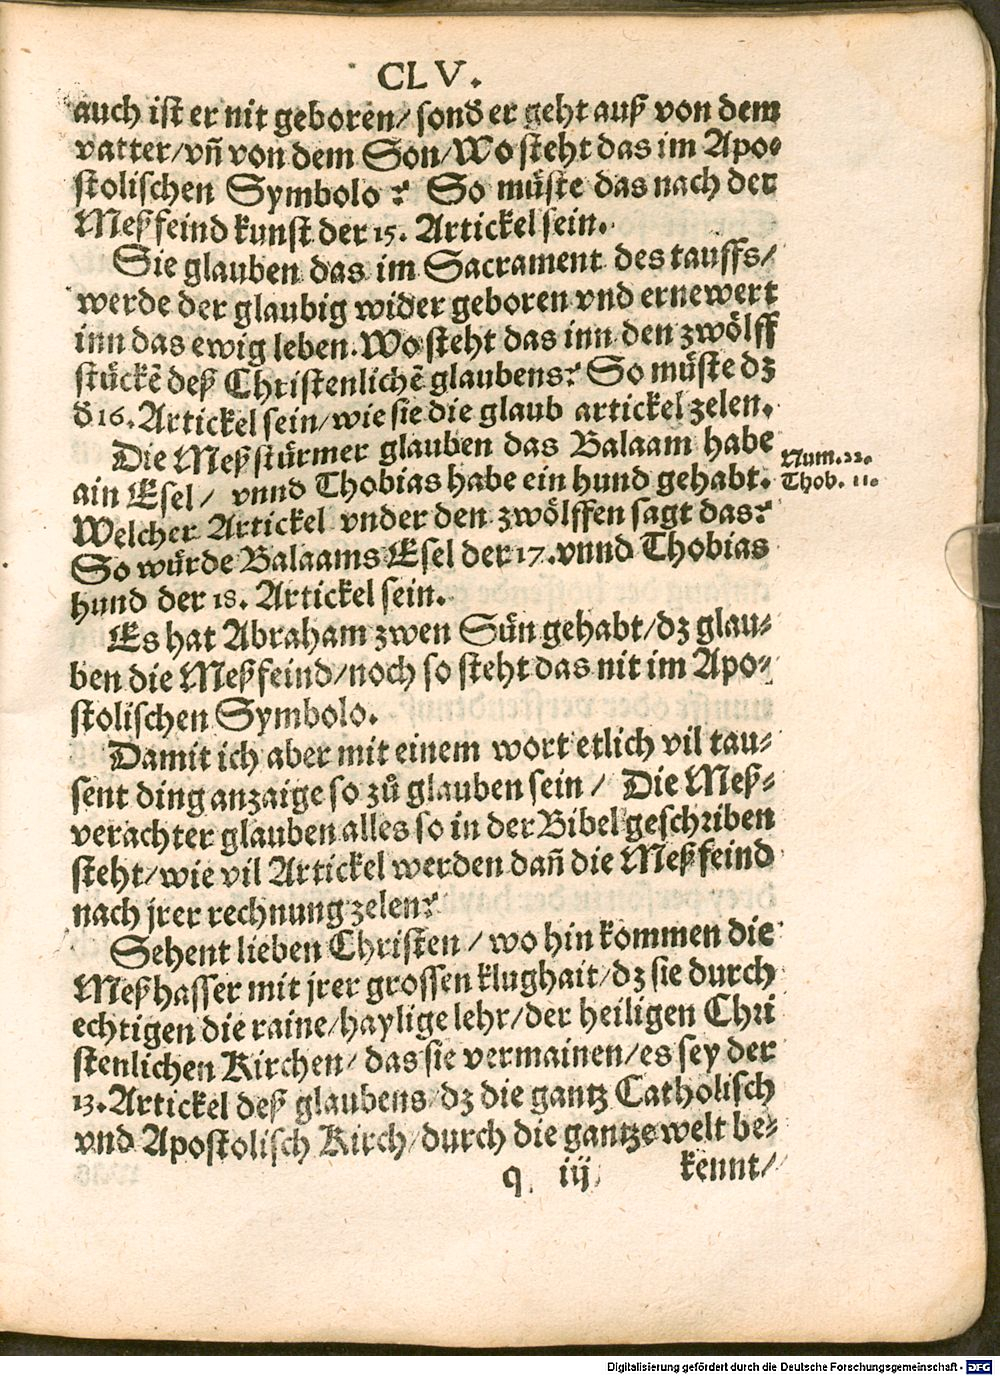 CLV.
auch ist er nit geboren/ sond̄ er geht auß von dem
vatter/ vñ von dem Son/ Wo steht das im Apo-
stolischen Symbolo? So můste das nach der
Meßfeind kunst der 15. Artickel sein.
Sie glauben das im Sacrament des tauffs/
werde der glaubig wider geboren vnd ernewert
inn das ewig leben. Wo steht das inn den zwölff
stückē deß Christenlichē glaubens? So müste dz
d̄ 16. Artickel sein/ wie sie die glaub artickel zelen.
Die Meßstürmer glauben das Balaam habe
ain Esel/ vnnd Thobias habe ein hund gehabt.
Num. 22.
Thob. 11.
Welcher Artickel vnder den zwölffen sagt das?
So würde Balaams Esel der 17. vnnd Thobias
hund der 18. Artickel sein.
Es hat Abraham zwen Sün gehabt/ dz glau-
ben die Meßfeind/ noch so steht das nit im Apo-
stolischen Symbolo.
Damit ich aber mit einem wort etlich vil tau-
sent ding anzaige so zů glauben sein/ Die Meß-
verachter glauben alles so in der Bibel geschriben
steht/ wie vil Artickel werden dañ die Meßfeind
nach jrer rechnung zelen?
Sehent lieben Christen/ wo hin kommen die
Meßhasser mit jrer grossen klughait/ dz sie durch
echtigen die raine/ haylige lehr/ der heiligen Chri
stenlichen Kirchen/ das sie vermainen/ es sey der
13. Artickel deß glaubens/ dz die gantz Catholisch
vnd Apostolisch Kirch/ durch die gantze welt be-
q iij kennt/
Digitalisierung gefördert durch die Deutsche Forschungsgemeinschaft - DFG